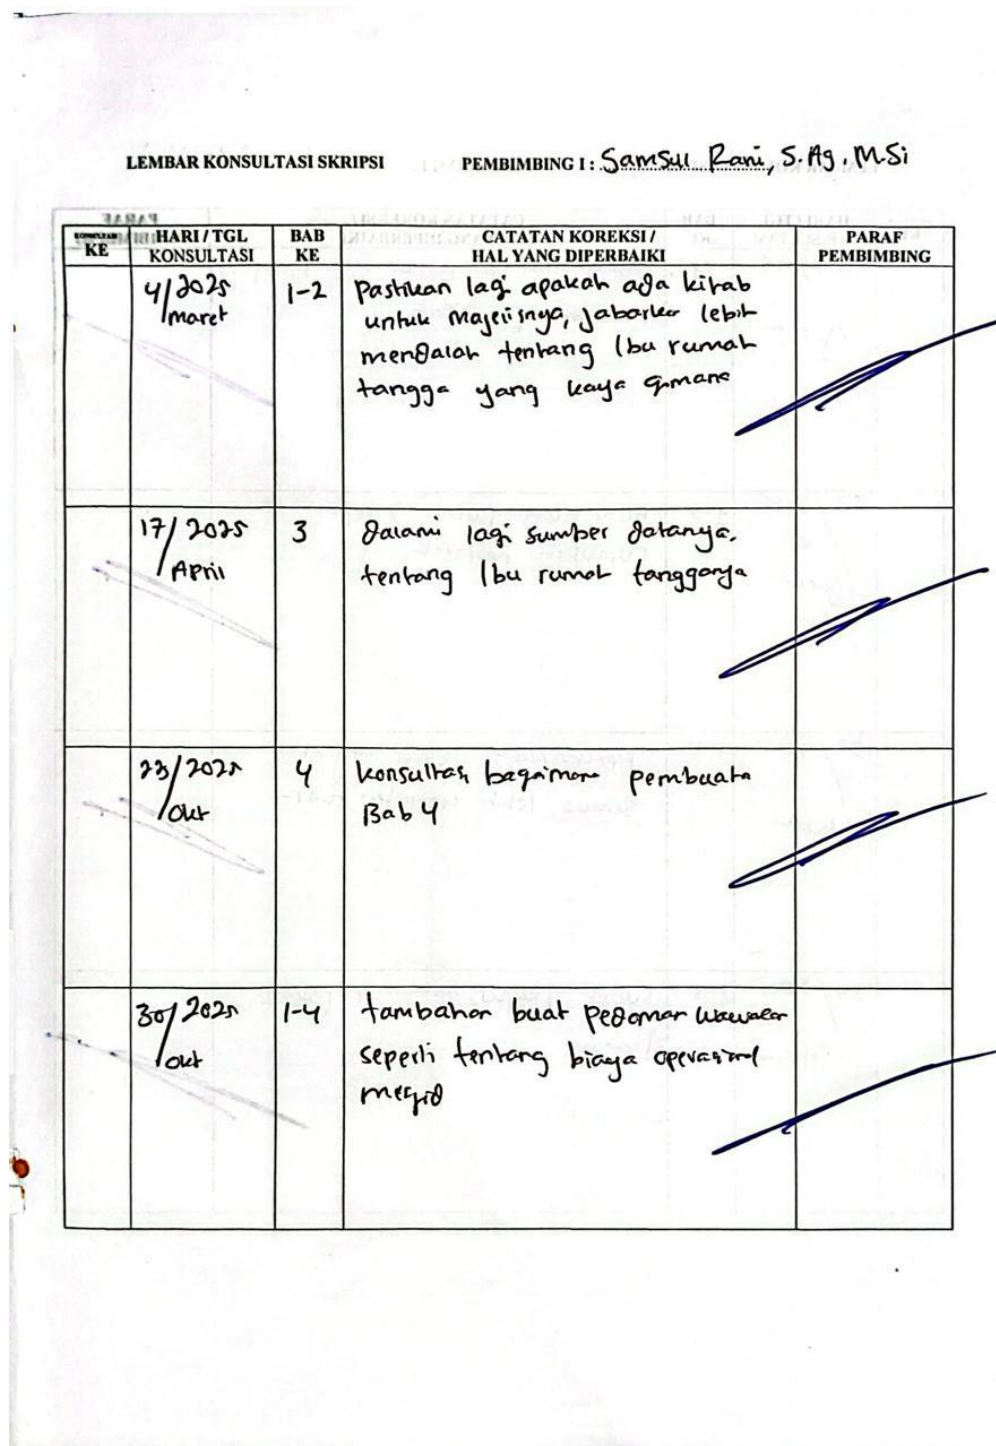 LEMBAR KONSULTASI SKRIPSI PEMBIMBING I : Samsul Rani, S.Ag. M.Si
KONSULTASI KE
HARI / TGL KONSULTASI
BAB KE
CATATAN KOREKSI / HAL YANG DIPERBAIKI
PARAF PEMBIMBING
4/2025
maret
1-2
Pastikan lagi apakah ada kitab
untuk majelisnya, jabarkan lebih
mendalam tentang Ibu rumah
tangga yang kaya gimana
17/2025
April
3
dalami lagi sumber datanya.
tentang Ibu rumah tangganya
23/2025
Okt
4
konsultasi bagaimana pembuatan
Bab 4
30/2025
okt
1-4
tambahan buat pedoman wawancara
seperti tentang biaya operasional
mesjid